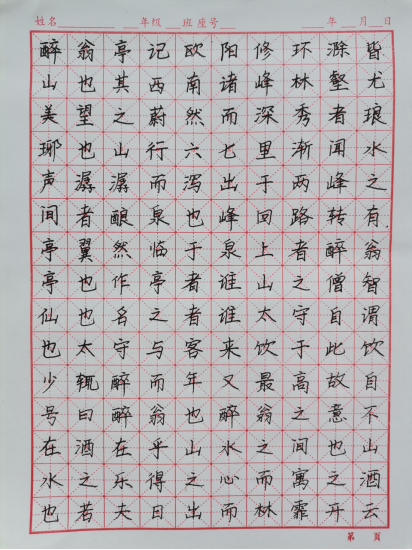 姓名 年级 班 座号 年 月 日
醉翁亭记欧阳修环滁皆
山也其西南诸峰林壑尤
美望之蔚然而深秀者琅
琊也山行六七里渐闻水
声潺潺而泻出于两峰之
间者酿泉也峰回路转有
亭翼然临于泉上者醉翁
亭也作亭者谁山之僧智
仙也名之者谁太守自谓
也太守与客来饮于此饮
少辄醉而年又最高故自
号曰醉翁也醉翁之意不
在酒在乎山水之间也山
水之乐得之心而寓之酒
也若夫日出而林霏开云
第 页